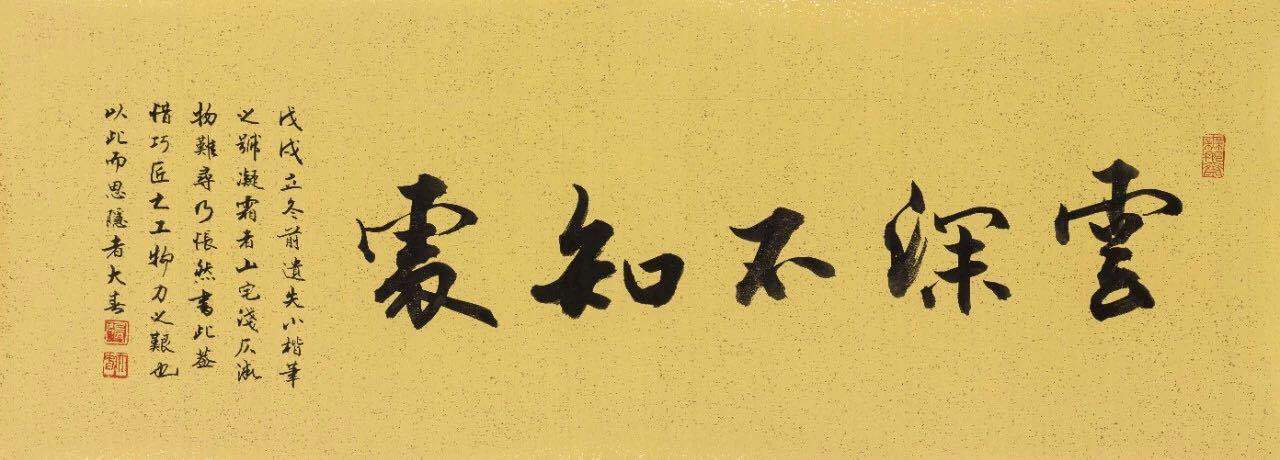 雲深不知處
戊戌立冬前遺失小楷筆
之號凝霜者山宅淺仄
物難尋乃悵然書此蓋
惜巧匠士工物力之艱也
以此而思隱者大春